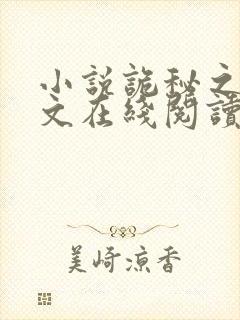 小説詭秘之
文在綫閱讀
美崎凉香